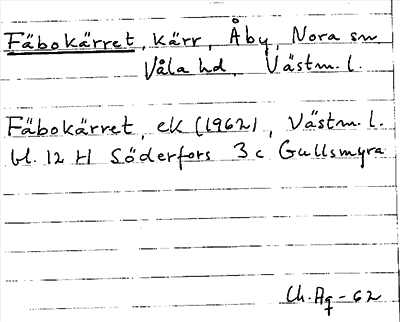 Fäbokärret, kärr, Åby, Nora sn
Våla hd, Västm. l.
Fäbokärret, ek (1962), Västm. l.
bl. 12 H Söderfors 3 c Gullsmyra
Ch. Ag - 62